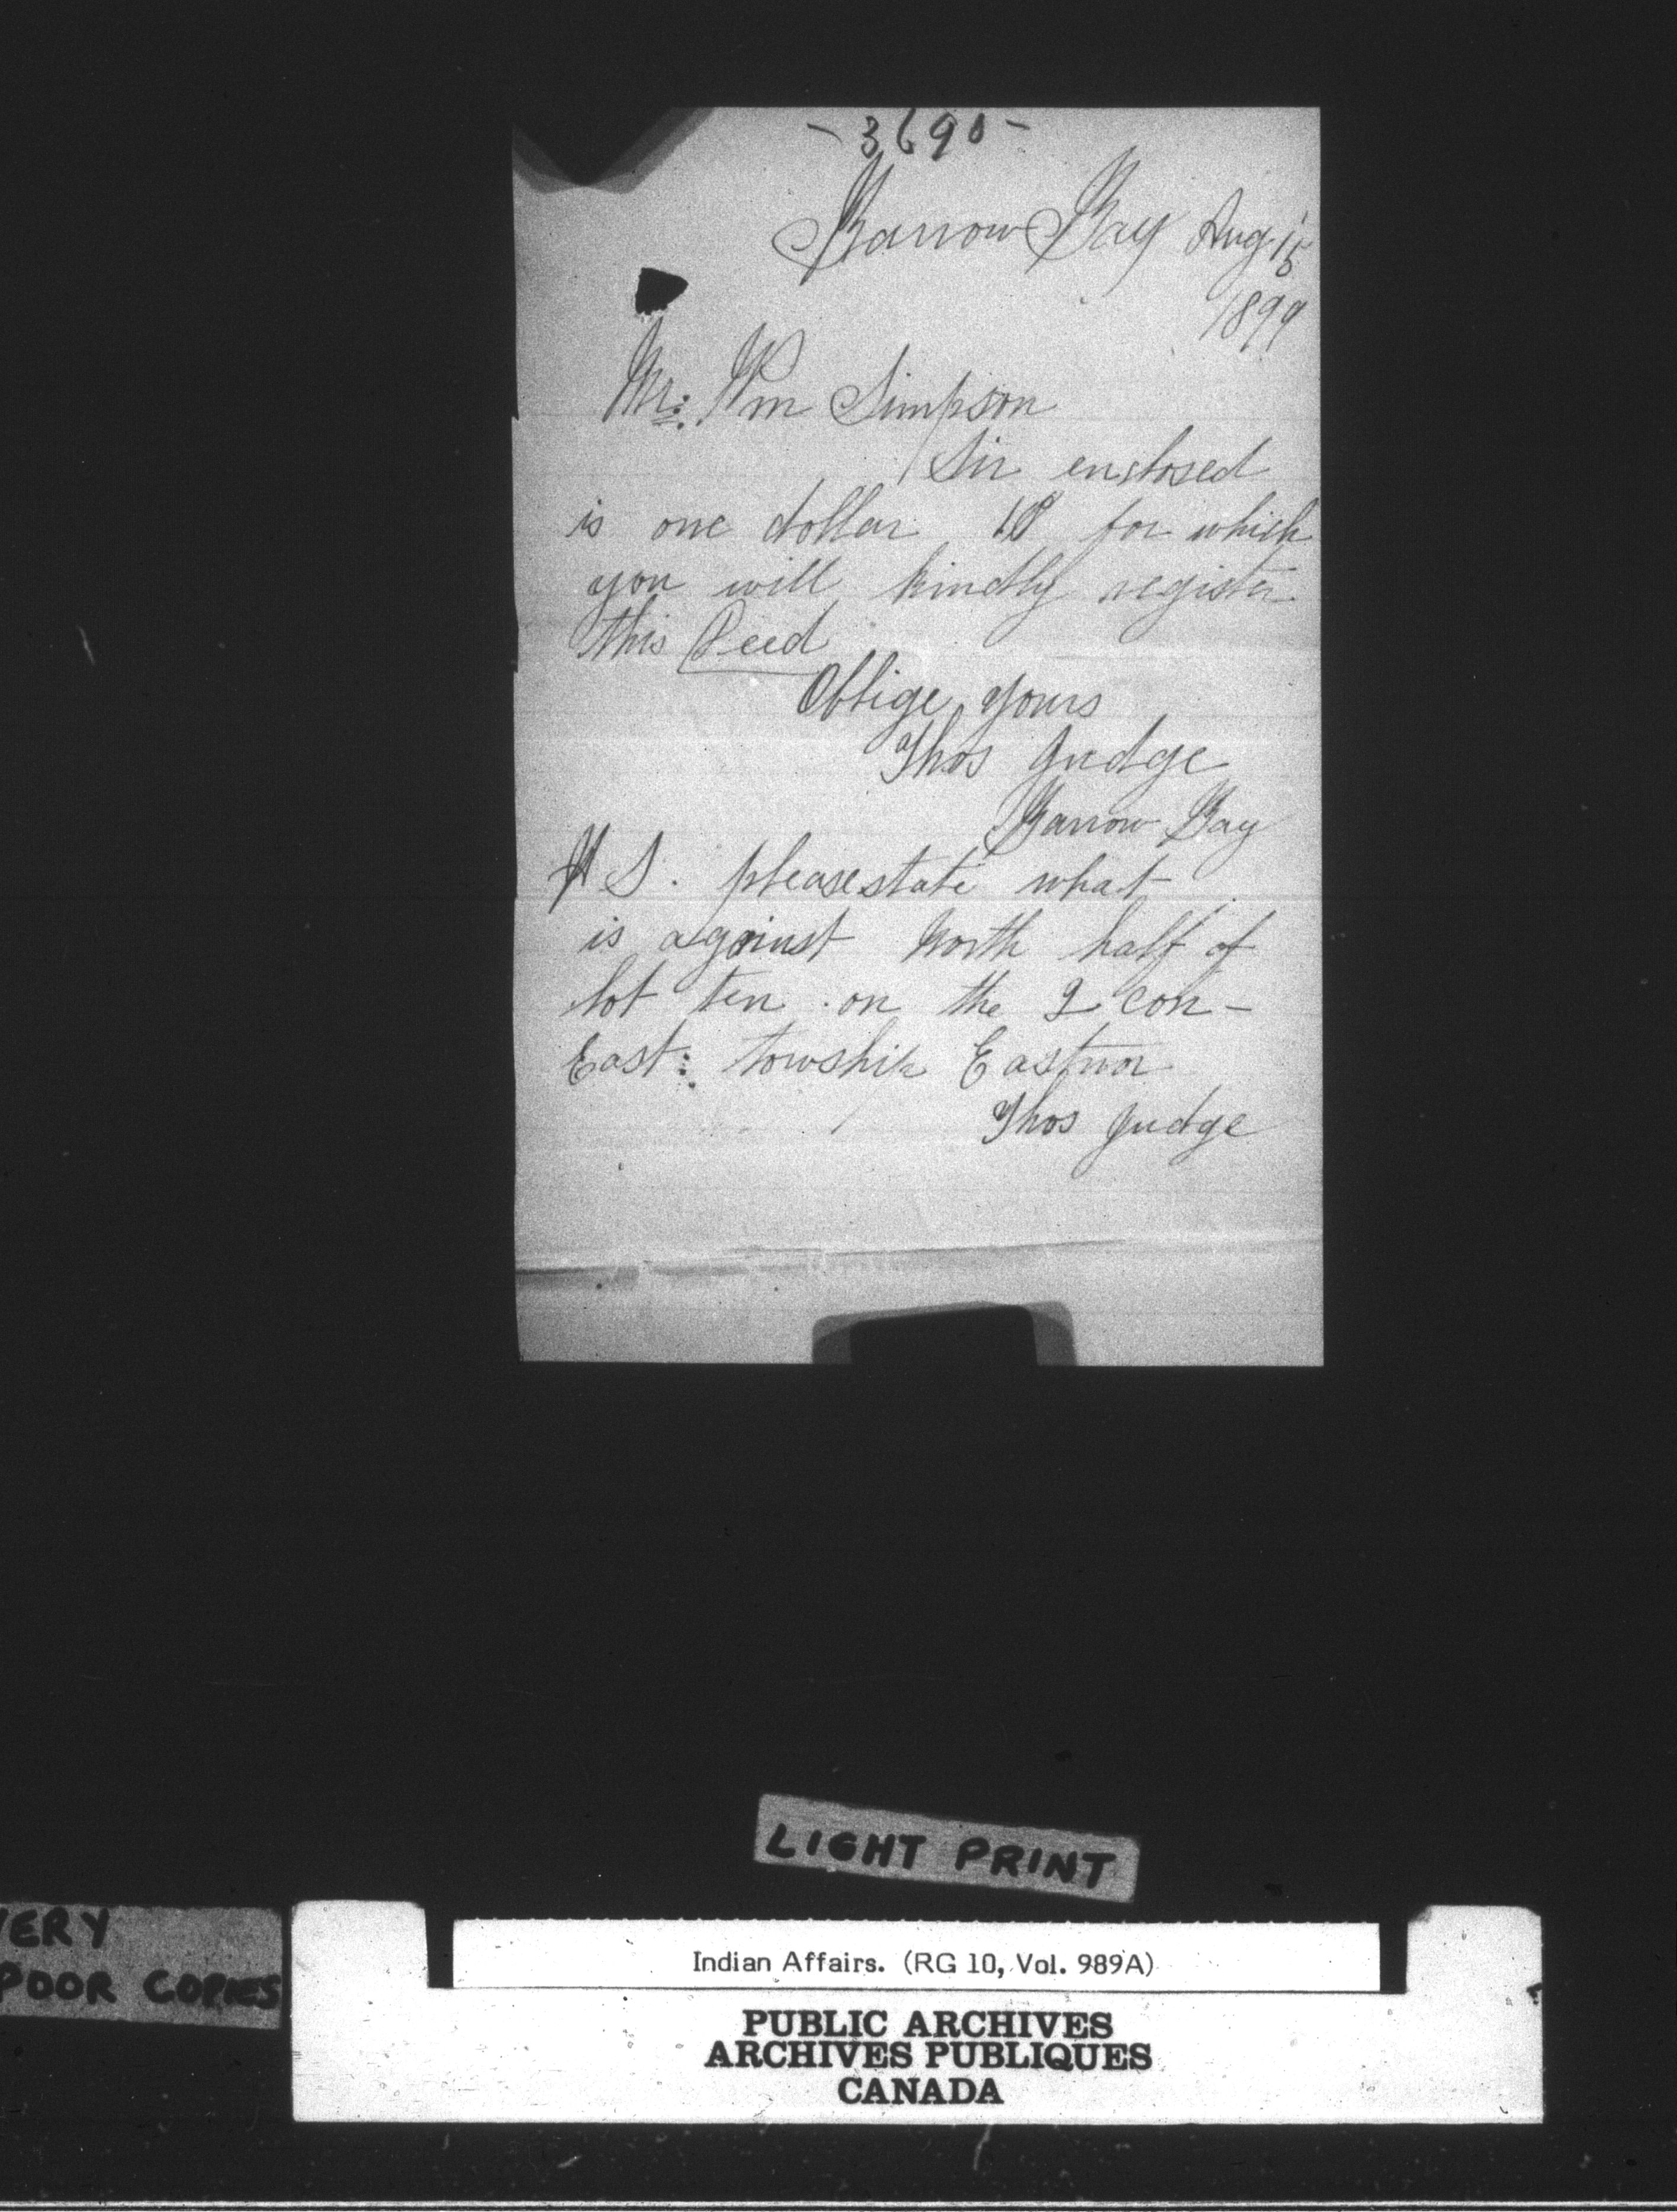 - 3690 -
Barrow Bay Aug 15
1899
Mr: Wm Simpson
Sir enclosed
is one dollar for which
you will kindly register
this Deed
Oblige yours
Thos Judge
Barrow Bay
S. please state what
is against North half of
lot ten on the 2 con -
East: towship Eastnor
Thos Judge
LIGHT PRINT
VERY
POOR COPIES
Indian Affairs. (RG 10, Vol. 989A)
PUBLIC ARCHIVES
ARCHIVES PUBLIQUES
CANADA